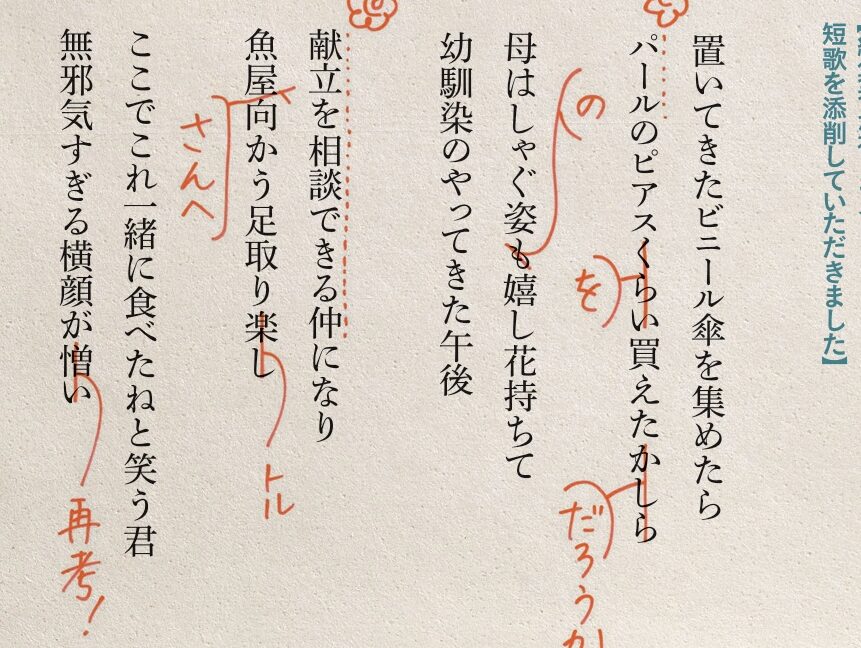 短歌を添削していただきました】
置いてきたビニール傘を集めたら
パールのピアスくらい買えたかしら
を
だろうか
の
母はしゃぐ姿も嬉し花持ちて
幼馴染のやってきた午後
献立を相談できる仲になり
魚屋向かう足取り楽し
さんへ
トル
ここでこれ一緒に食べたねと笑う君
無邪気すぎる横顔が憎い
再考!